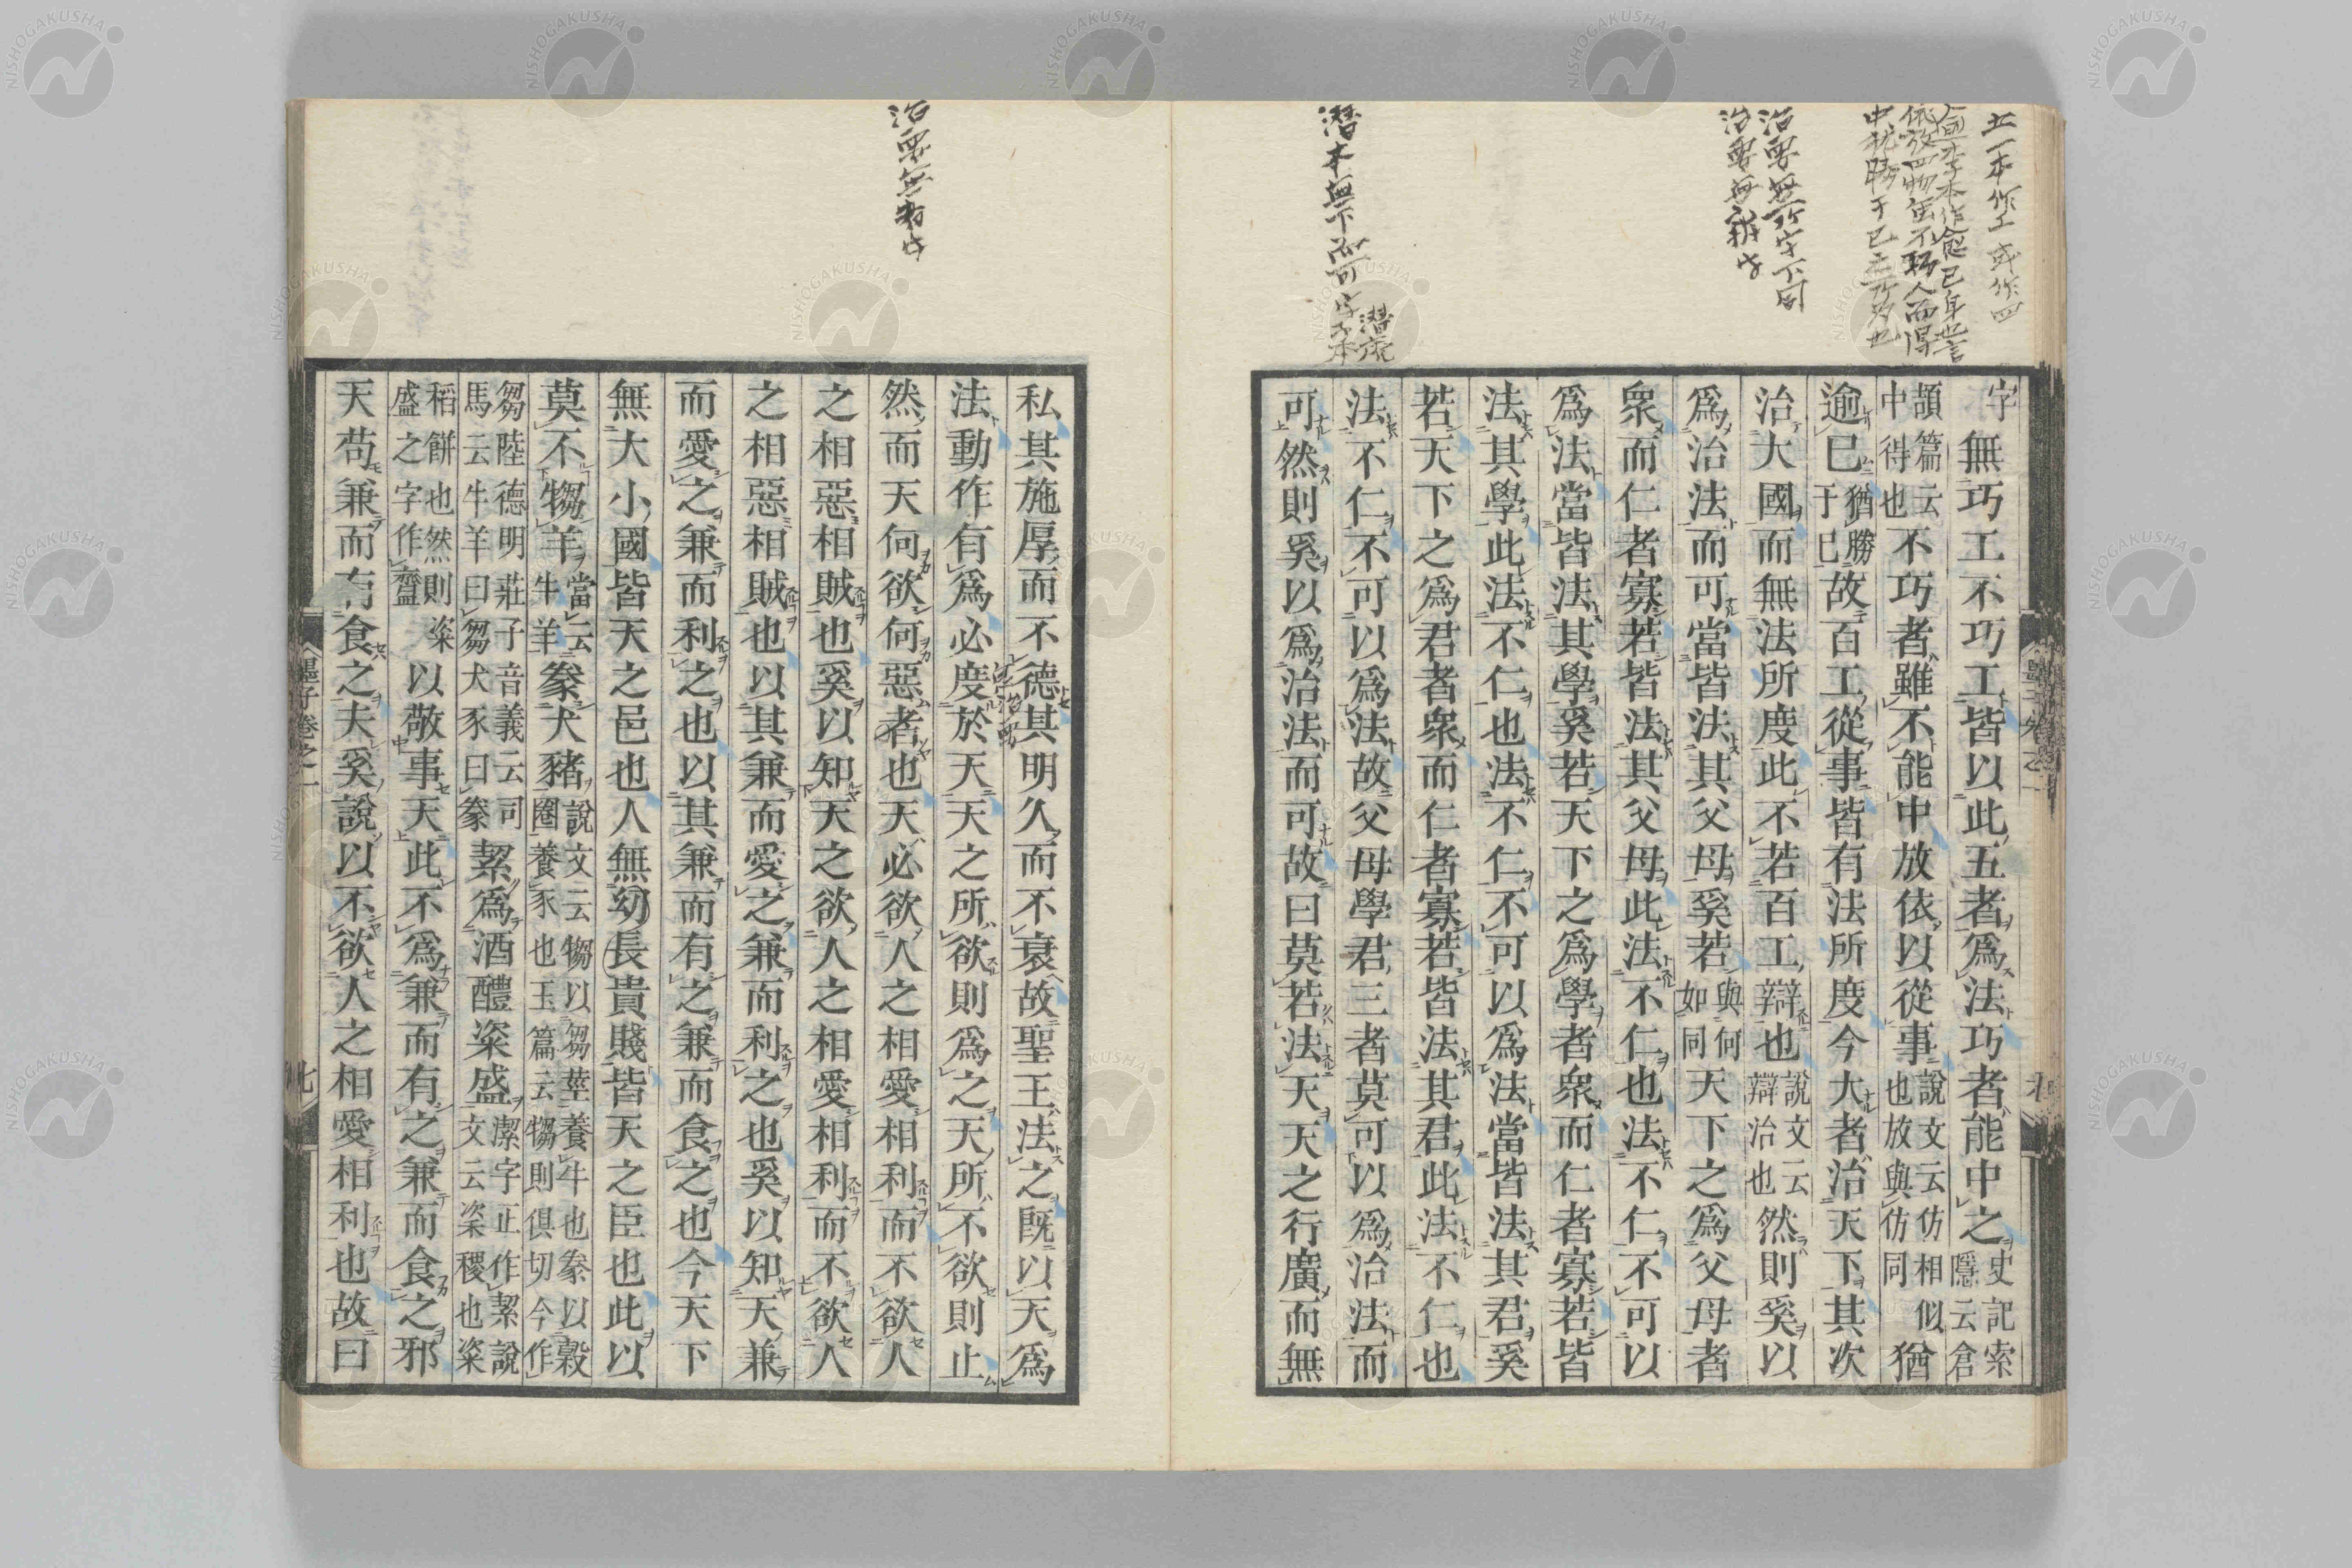 五一本作工或作四
治要無所字下同
治要無辯字
潛本無下而可字
字無巧工不巧工皆以此五者爲法巧者能中之史記索隱云倉
頡篇云中得也不巧者雖不能中放依以從事說文云仿相似也放與仿同猶
逾已猶勝于已故百工從事皆有法所度今大者治天下其次
治大國而無法所度此不若百工辯也說文云辯治也然則奚以
爲治法而可當皆法其父母奚若與何如同天下之爲父母者
衆而仁者寡若皆法其父母此法不仁也法不仁不可以
爲法當皆法其學奚若天下之爲學者衆而仁者寡若皆
法其學此法不仁也法不仁不可以爲法當皆法其君奚
若天下之爲君者衆而仁者寡若皆法其君此法不仁也
法不仁不可以爲法故父母學君三者莫可以爲治法而
可然則奚以爲治法而可故曰莫若法天天之行廣而無
治要無者字
私其施厚而不德其明久而不衰故聖王法之既以天爲
法動作有爲必度於天天之所欲則爲之天所不欲則止
然而天何欲何惡者也天必欲人之相愛相利而不欲人
之相惡相賊也奚以知天之欲人之相愛相利而不欲人
之相惡相賊也以其兼而愛之兼而利之也奚以知天兼
而愛之兼而利之也以其兼而有之兼而食之也今天下
無大小國皆天之邑也人無幼長貴賤皆天之臣也此以
莫不犓羊當云牛羊豢犬豬說文云犓以芻莖養牛也豢以穀圈養豕也玉篇云犓則俱切今作
芻陸德明莊子音義云司馬云牛羊曰芻犬豕曰豢絜爲酒醴粢盛潔字正作絜說文云粢稷也粢
稻餅也然則粢盛之字作齍以敬事天此不爲兼而有之兼而食之邪
天苟兼而有食之夫奚說以不欲人之相愛相利也故曰
墨子卷之一
七